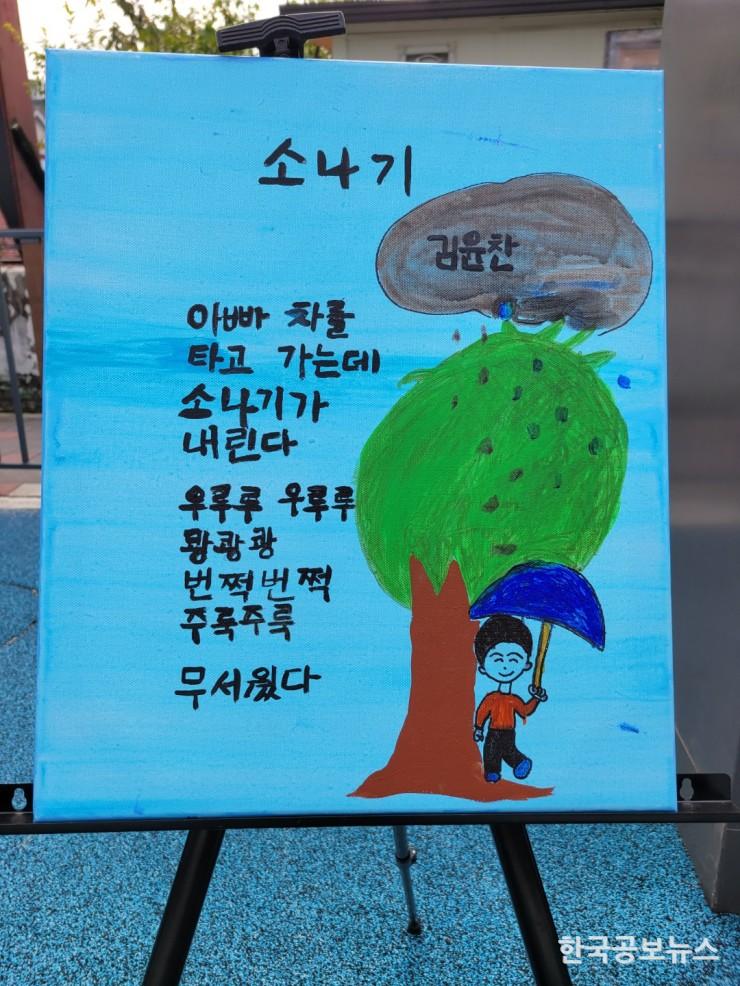 소나기
김윤찬
아빠 차를
타고 가는데
소나기가
내린다
우루루 우루루
쾅쾅쾅
번쩍번쩍
주룩주룩
무서웠다
한국공보뉴스